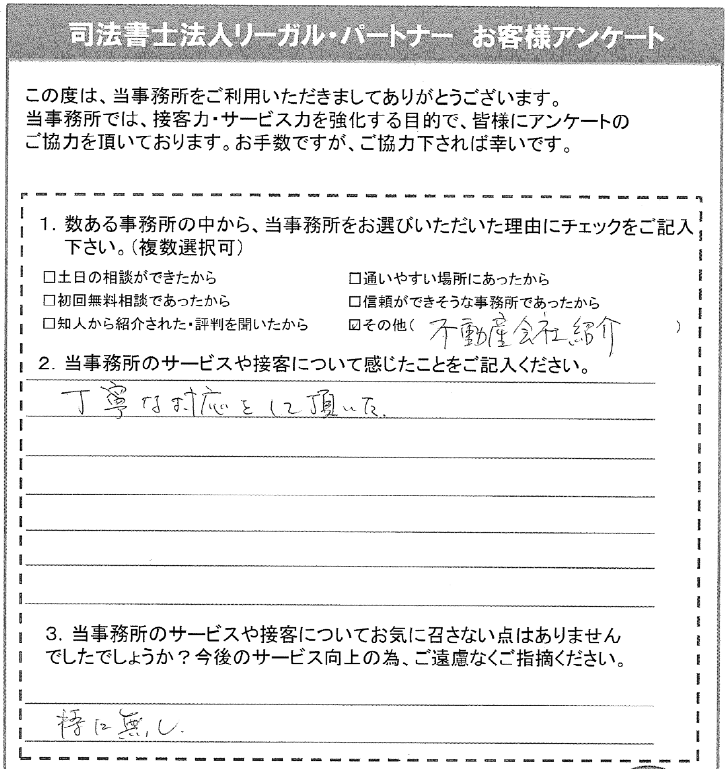 司法書士法人リーガル・パートナー お客様アンケート
この度は、当事務所をご利用いただきましてありがとうございます。
当事務所では、接客力・サービス力を強化する目的で、皆様にアンケートの
ご協力を頂いております。お手数ですが、ご協力下されば幸いです。
1. 数ある事務所の中から、当事務所をお選びいただいた理由にチェックをご記入
下さい。(複数選択可)
□土日の相談ができたから □通いやすい場所にあったから
□初回無料相談であったから □信頼ができそうな事務所であったから
□知人から紹介された・評判を聞いたから ☑その他( 不動産会社紹介 )
2. 当事務所のサービスや接客について感じたことをご記入ください。
丁寧な対応をして頂いた。
3. 当事務所のサービスや接客についてお気に召さない点はありません
でしたでしょうか?今後のサービス向上の為、ご遠慮なくご指摘ください。
特に無し。